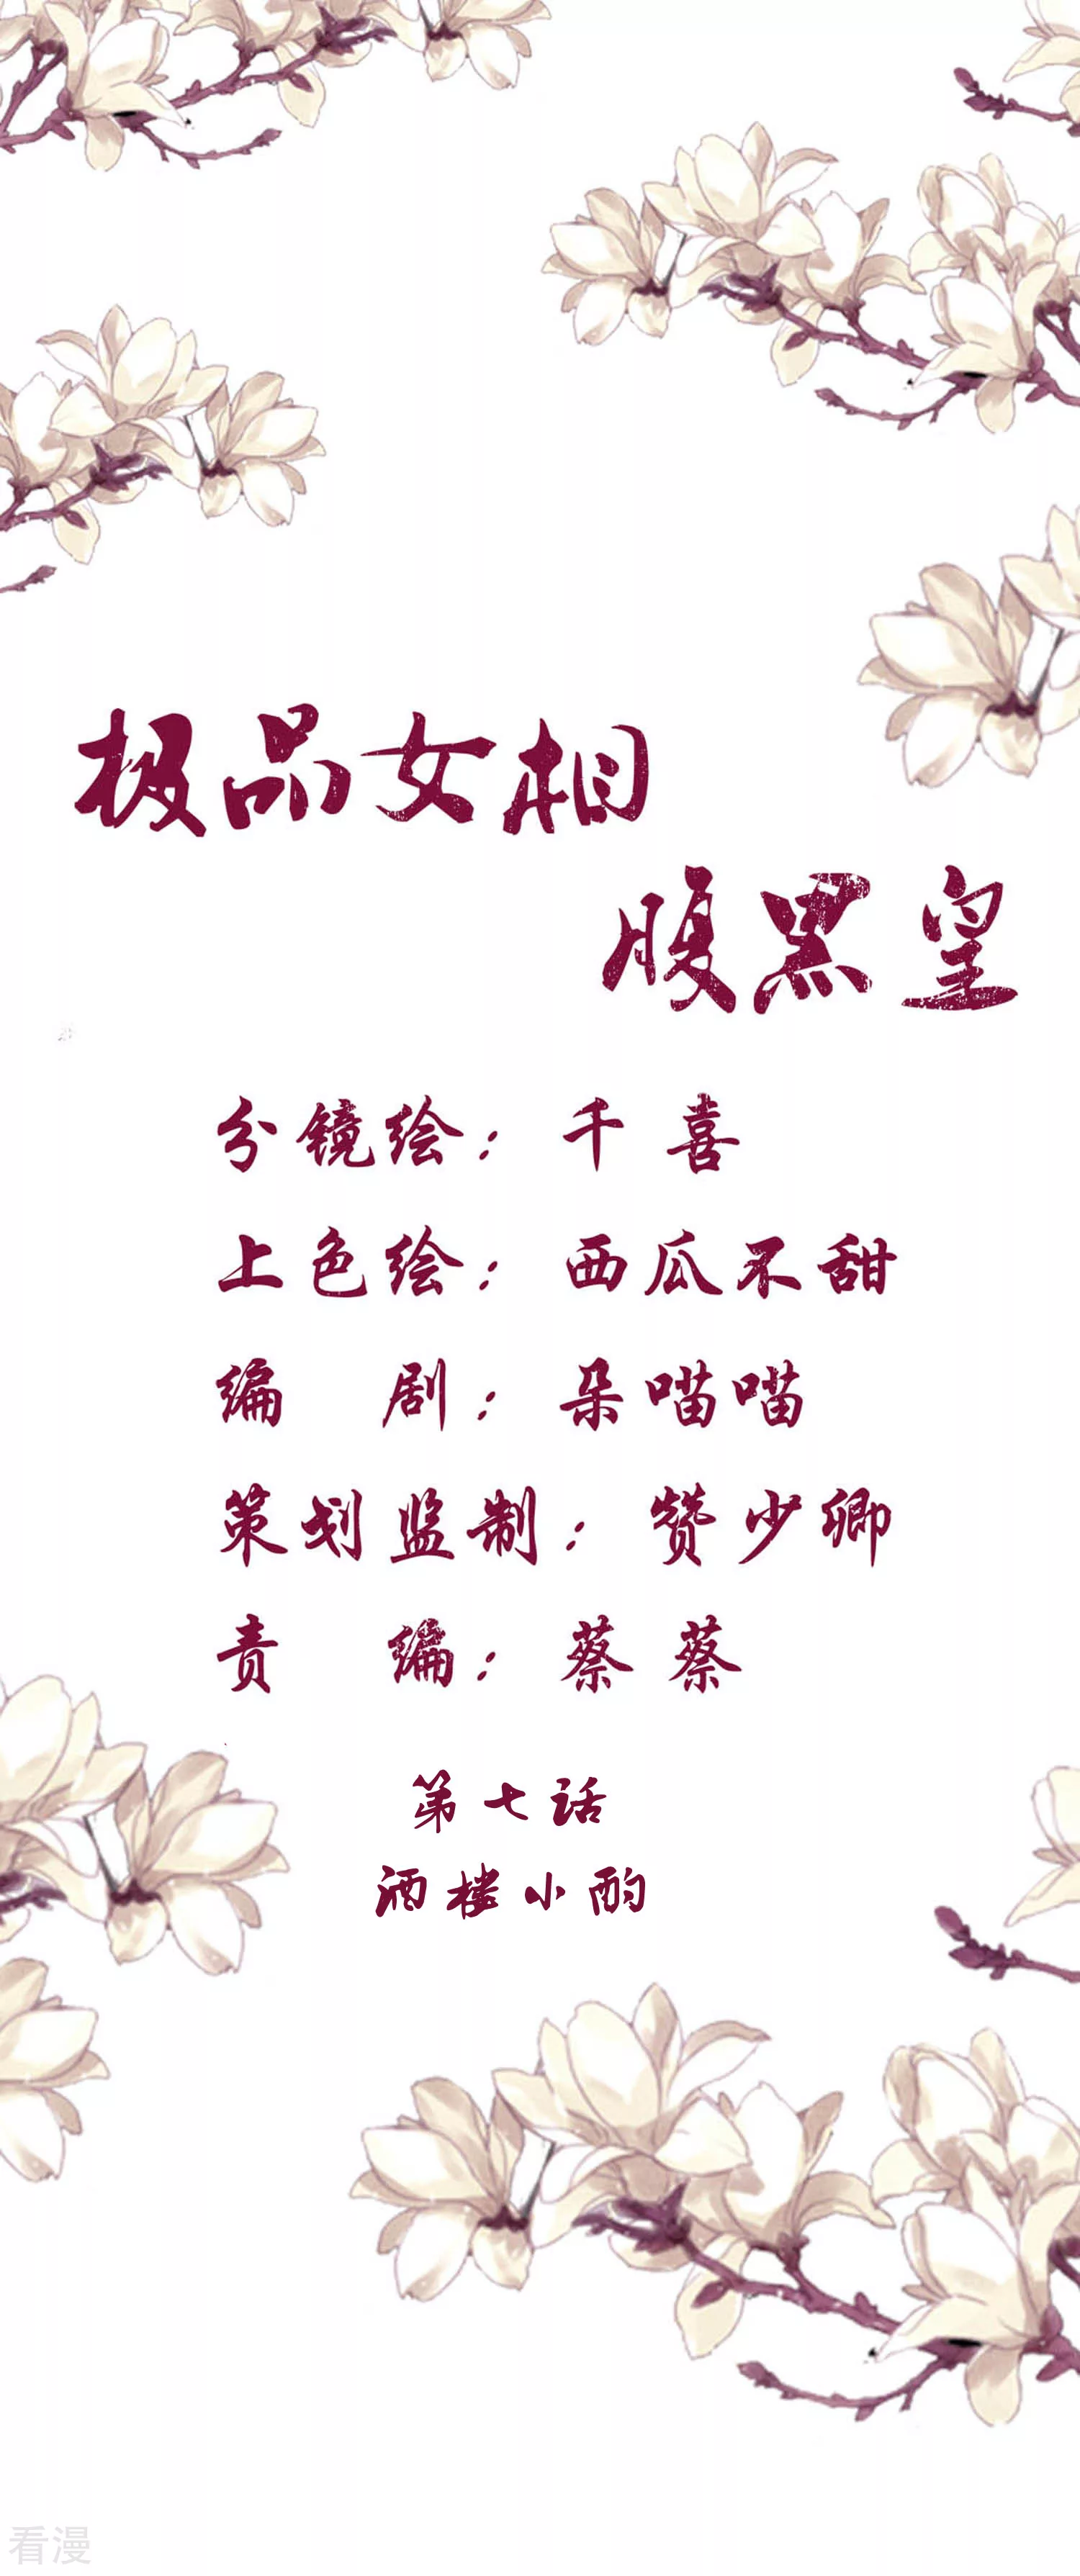 极品女相
腹黑皇
分镜绘：千喜
上色绘：西瓜不甜
编 剧：朵喵喵
策划监制：赞少卿
责 编：蔡蔡
第七话
酒楼小酌
看漫